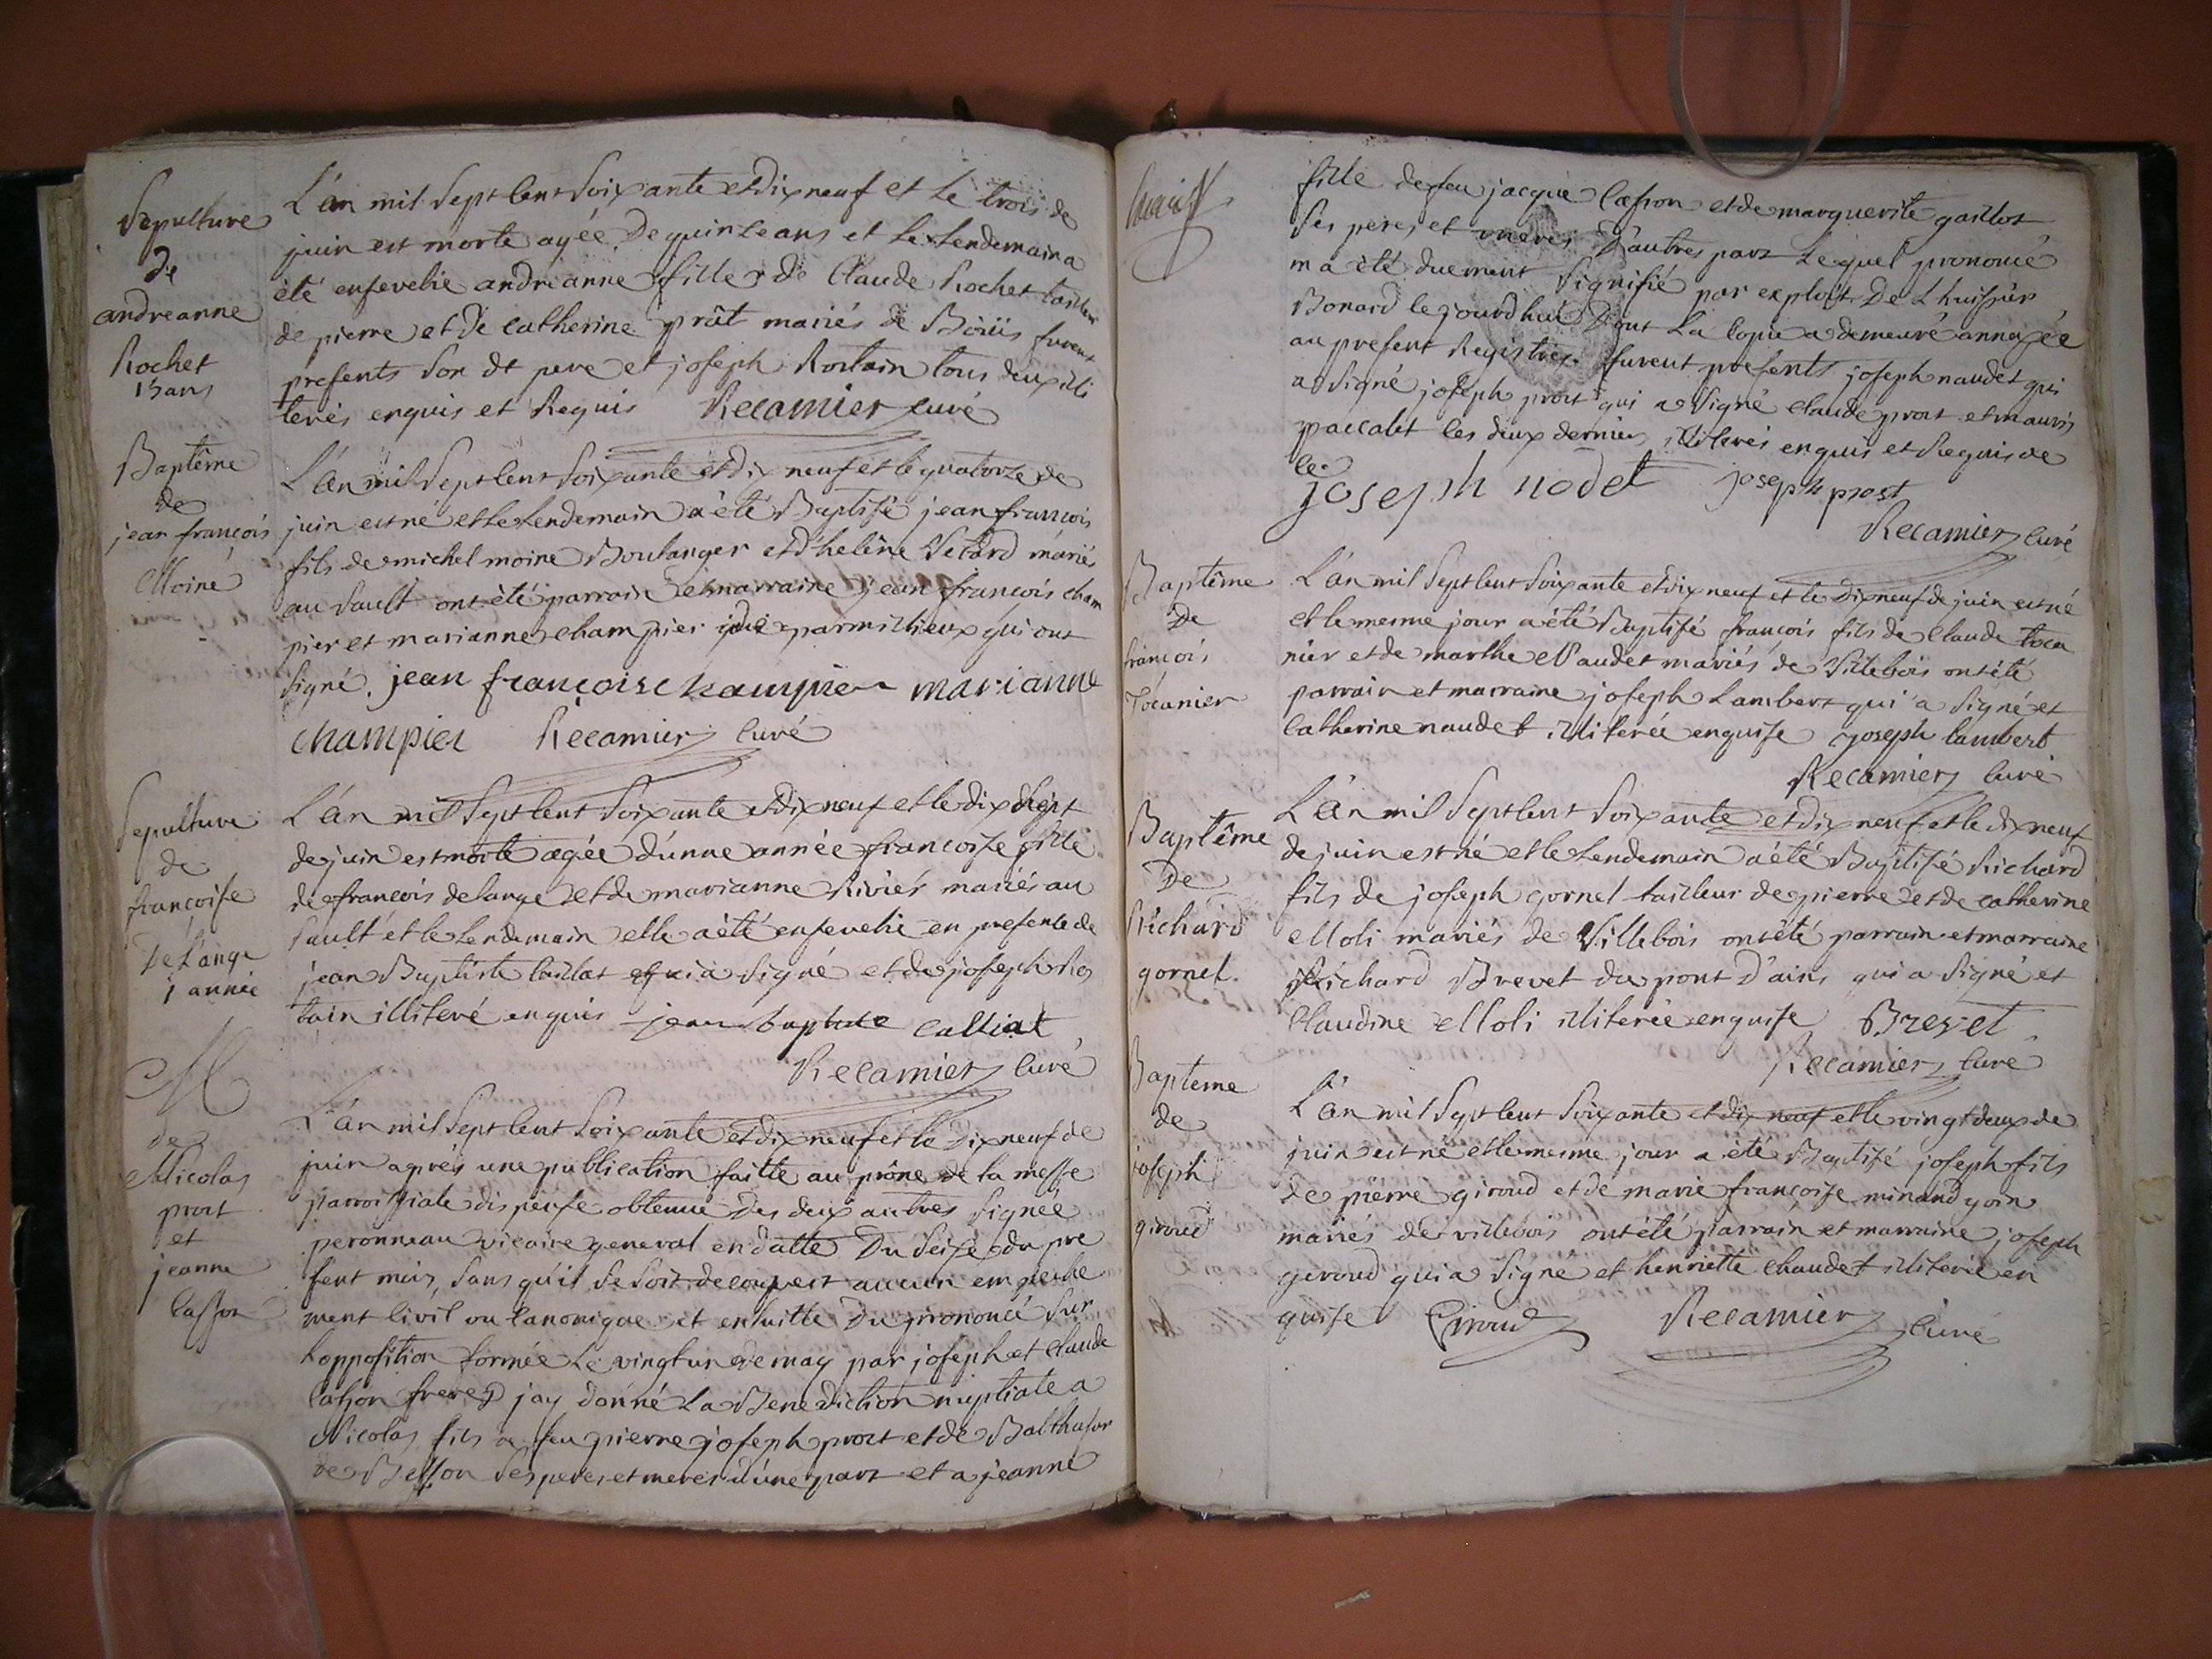 Sepulture
de
andreanne
Rochet
15 ans
L'an mil sept cent soixante et dix neuf et le trois de
juin est morte agée de quinze ans et le lendemain a
été ensevelie andréanne fille de Claude Rochet tailleur
de pierre et de catherine prât mariés de Boüis furent
presents son dt pere et joseph Rostain tous deux illi
terés enquis et Requis Recamier curé
Baptême
de
jean françois
Moine
L'an mil sept cent soixante et dix neuf et le quatorze de
juin est né et le lendemain a été Baptisé jean françois
fils de michel moine Boulanger et d'helene Setard mariés
au Sault ont été parrain et marraine jean françois cham
pier et marianne champier qui ont
signé. jean françois champier marianne
champier Recamier curé
Sepulture
de
françoise
De Lange
1 année
L'an mil sept cent soixante et dix neuf et le dix sept
de juin est morte agée d'une année françoise fille
de françois delange et de marianne Riviér mariés au
sault et le lendemain elle a été ensevelie en presence de
jean Baptiste caillat qui a signé et de joseph Ros
tain illiteré enquis jean baptiste calliat
Recamier curé
M
de
Nicolas
prost
et
jeanne
Casson
L'an mil sept cent soixante et dix neuf et le dix neuf de
juin aprés une publication faitte au prône de la messe
parroissiale dispense obtenue des deux autres signée
peronneau vicaire general en datte du seise du pre
sent mois, sans qu'il se soit decouvert aucun empeche
ment civil ou canonique et ensuitte du prononcé sur
l'opposition formée le vingt un de may par joseph et claude
casson freres jay donné la Benediction nuptiale a
Nicolas fils de feu pierre joseph prost et de Balthasar
de Besson ses peres et meres d'une part et a jeanne
fille de feu jacque Casson et de marguerite gaillot
ses peres et meres d'autres part lequel prononcé
m'a été duement signifié par exploit de L'huissier
Bonard le jourd'hui dont la copie a demeuré annexée
au present Registre. furent presents joseph naudet qui
a signé joseph prost qui a signé claude prost et mauris
paccalet les deux derniers illiterés enquis et Requis de
ce.
joseph nodet joseph prost
Recamier curé
Baptême
De
françois
Tocanier
L'an mil sept cent soixante et dix neuf et le dix neuf de juin est né
et le mesme jour a été Baptisé françois fils de claude toca
nier et de marthe Naudet mariés de Villebois ont été
parrain et marraine joseph Lambert qui a signé et
Catherine naudet illiterée enquise joseph lambert
Recamier curé
Baptême
De
Richard
gornet.
L'an mil sept cent soixante et dix neuf et le dix neuf
de juin est né et le lendemain a été Baptisé Richard
fils de joseph gornet tailleur de pierre et de catherine
Moli mariés de Villebois ont été parrain et marraine
Richard Brevet du pont d'ains qui a signé et
Claudine Moli illiterée enquise Brevet
Recamier curé
Bapteme
de
joseph
giroud
L'an mil sept cent soixante et dix neuf et le vingt deux de
juin est né et le mesme jour a été Baptisé joseph fils
de pierre giroud et de marie françoise minand yoin
mariés de villebois ont été parrain et marraine joseph
giroud qui a signé et henriette chaudet illiterée en
quise Giroud Recamier curé